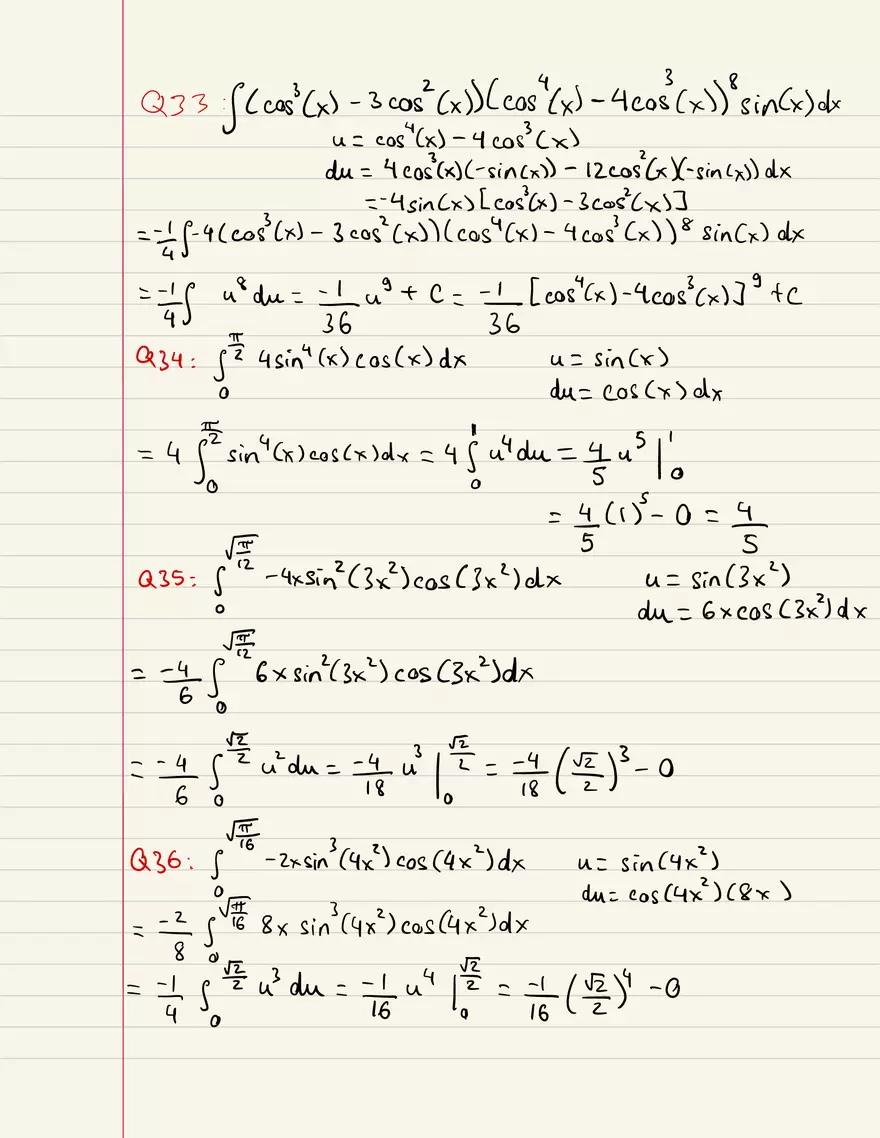 Q33: ∫(cos³(x) - 3cos²(x))(cos⁴(x) - 4cos³(x))⁸ sin(x)dx
u = cos⁴(x) - 4cos³(x)
du = 4cos³(x)(-sin(x)) - 12cos²(x)(-sin(x))dx
= -4sin(x)[cos³(x) - 3cos²(x)]
= -1/4 ∫-4(cos³(x) - 3cos²(x))(cos⁴(x) - 4cos³(x))⁸ sin(x) dx
= -1/4 ∫ u⁸ du = -1/36 u⁹ + C = -1/36 [cos⁴(x) - 4cos³(x)]⁹ + C
Q34: ∫₀^(π/2) 4sin⁴(x)cos(x)dx u = sin(x)
du = cos(x)dx
= 4 ∫₀^(π/2) sin⁴(x)cos(x)dx = 4 ∫₀^1 u⁴du = 4/5 u⁵ |₀^1
= 4/5 (1)⁵ - 0 = 4/5
Q35: ∫₀^(√(π/12)) -4xsin²(3x²)cos(3x²)dx u = sin(3x²)
du = 6xcos(3x²)dx
= -4/6 ∫₀^(√(π/12)) 6xsin²(3x²)cos(3x²)dx
= -4/6 ∫₀^(√2/2) u²du = -4/18 u³ |₀^(√2/2) = -4/18 (√2/2)³ - 0
Q36: ∫₀^(√(π/16)) -2xsin³(4x²)cos(4x²)dx u = sin(4x²)
du = cos(4x²)(8x)
= -2/8 ∫₀^(√(π/16)) 8x sin³(4x²)cos(4x²)dx
= -1/4 ∫₀^(√2/2) u³ du = -1/16 u⁴ |₀^(√2/2) = -1/16 (√2/2)⁴ - 0